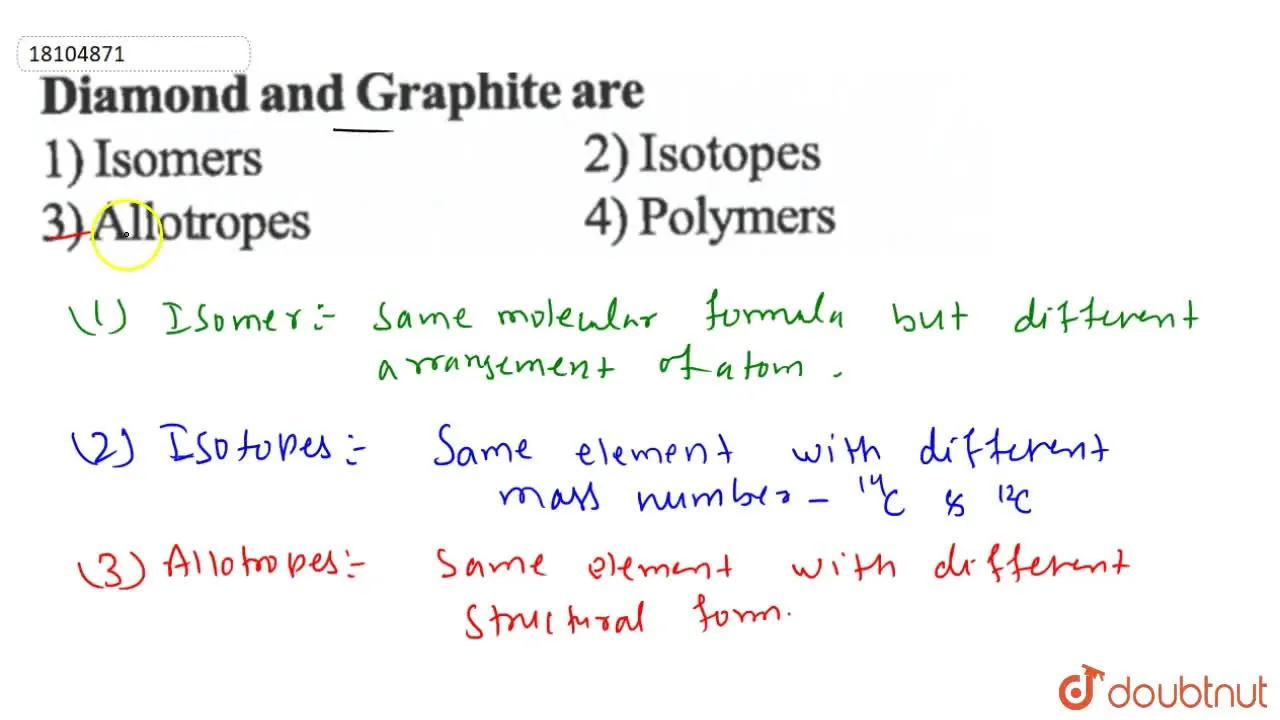 18104871
Diamond and Graphite are
1) Isomers 2) Isotopes
3) Allotropes 4) Polymers
(1) Isomer:- same molecular formula but different
arrangement of atom.
(2) Isotopes:- Same element with different
mass number - ¹⁴C & ¹²C
(3) Allotropes:- Same element with different
structural form.
doubtnut